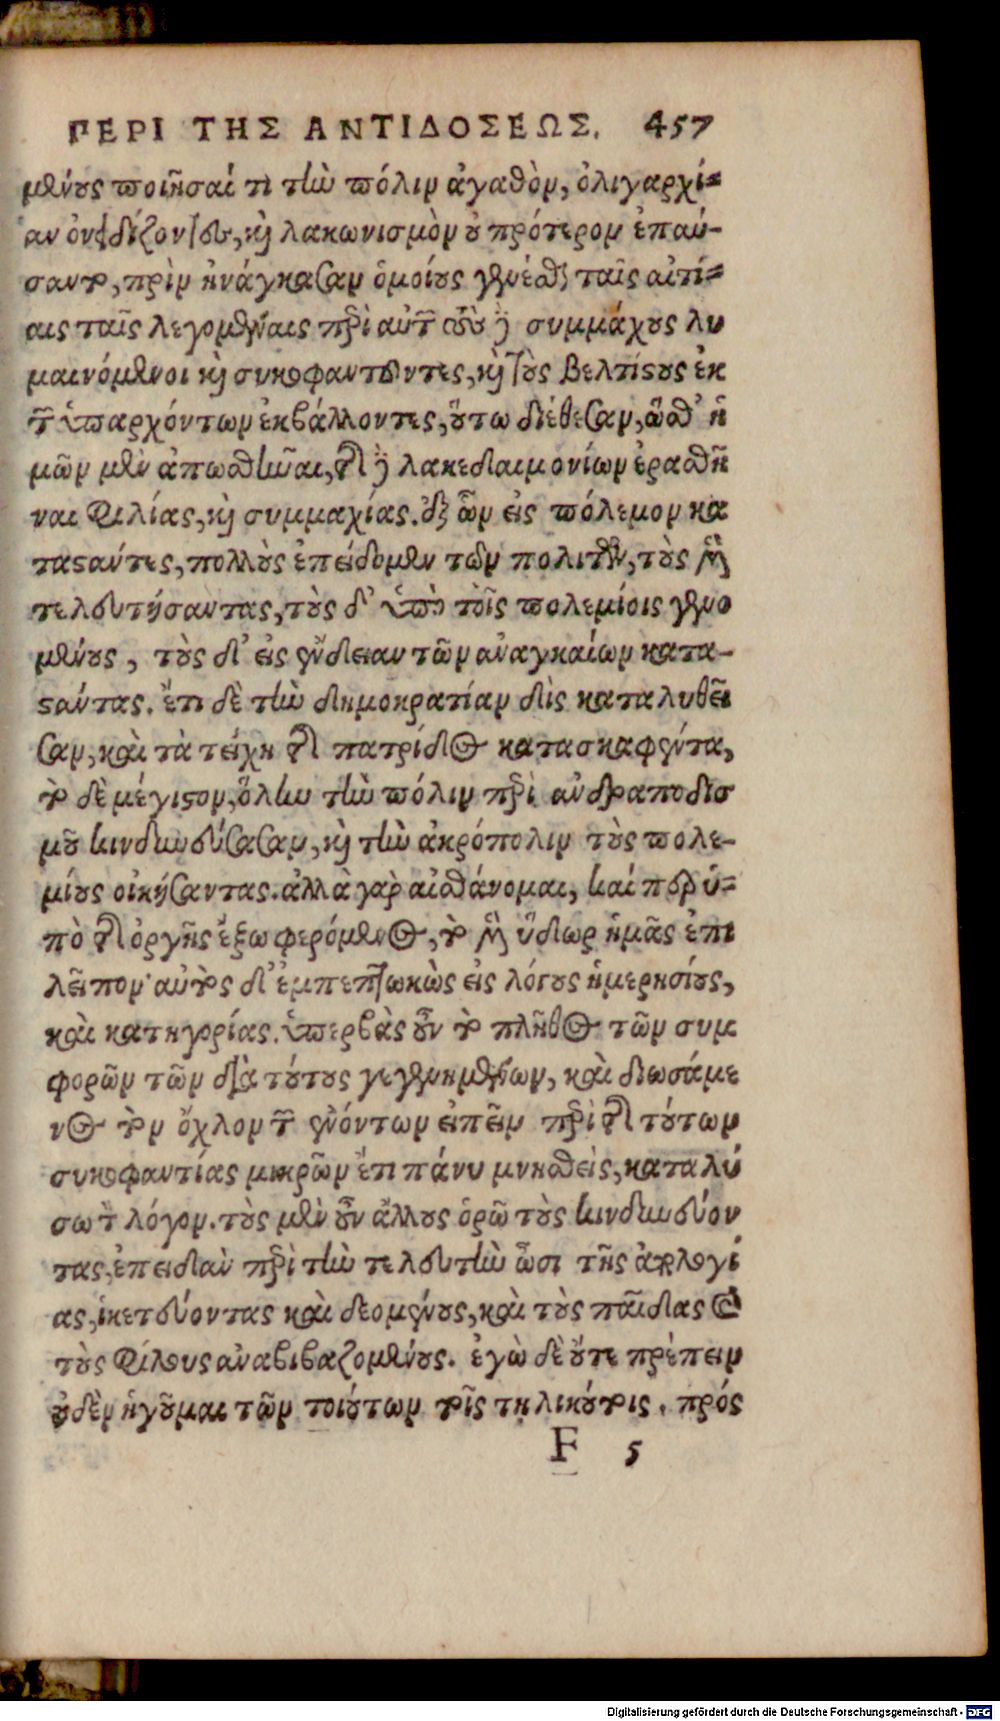 ΠΕΡΙ ΤΗΣ ΑΝΤΙΔΟΣΕΩΣ. 457
μένους ποιῆσαί τι τὴν πόλιν ἀγαθὸν, ὀλιγαρχί-
αν ὀνειδίζοντες, καὶ λακωνισμὸν οὐ πρότερον ἐπαύ-
σαντο, πρὶν ἠνάγκασαν ὁμοίους γενέσθαι ταῖς αἰτί-
αις ταῖς λεγομέναις περὶ αὐτῶν τοὺς δὲ συμμάχους λυ
μαινόμενοι καὶ συκοφαντοῦντες, καὶ τοὺς βελτίστους ἐκ
τῶν ὑπαρχόντων ἐκβάλλοντες, οὕτω διέθεσαν, ὥσθ' ἡ
μῶν μὲν ἀπωσθῆναι, τῆς δὲ λακεδαιμονίων ἐρασθῆ
ναι φιλίας, καὶ συμμαχίας. ἐξ ὧν εἰς πόλεμον κα
ταστάντες, πολλοὺς ἐπείδομεν τῶν πολιτῶν, τοὺς μὲν
τελευτήσαντας, τοὺς δ' ὑπὸ τοῖς πολεμίοις γενο
μένους, τοὺς δ' εἰς ἔνδειαν τῶν ἀναγκαίων κατα-
στάντας. ἔτι δὲ τὴν δημοκρατίαν δὶς καταλυθεῖ
σαν, καὶ τὰ τείχη τῆς πατρίδος κατασκαφέντα,
τὸ δὲ μέγιστον, ὅλην τὴν πόλιν περὶ ἀνδραποδισ
μοῦ κινδυνεύσασαν, καὶ τὴν ἀκρόπολιν τοὺς πολε-
μίους οἰκήσαντας. ἀλλὰ γὰρ αἰσθάνομαι, καίπερ ὑ-
πὸ τῆς ὀργῆς ἔξω φερόμενος, τὸ μὲν ὕδωρ ἡμᾶς ἐπι
λεῖπον· αὐτὸς δ' ἐμπεπτωκὼς εἰς λόγους ἡμερησίους,
καὶ κατηγορίας. ὑπερβὰς οὖν τὸ πλῆθος τῶν συμ
φορῶν τῶν διὰ τούτους γεγενημένων, καὶ διωσάμε
νος τὸν ὄχλον τῶν ἐνόντων εἰπεῖν περὶ τῆς τούτων
συκοφαντίας μικρῶν ἔτι πάνυ μνησθεὶς, καταλύ
σω τὸν λόγον. τοὺς μὲν οὖν ἄλλους ὁρῶ τοὺς κινδυνεύον
τας, ἐπειδὰν περὶ τὴν τελευτὴν ὦσι τῆς ἀπολογί
ας, ἱκετεύοντας καὶ δεομένους, καὶ τοὺς παῖδας καὶ
τοὺς φίλους ἀναβιβαζομένους. ἐγὼ δὲ οὔτε πρέπειν
οὐδὲν ἡγοῦμαι τῶν τοιούτων τοῖς τηλικούτοις. πρός
F 5
Digitalisierung gefördert durch die Deutsche Forschungsgemeinschaft - DFG